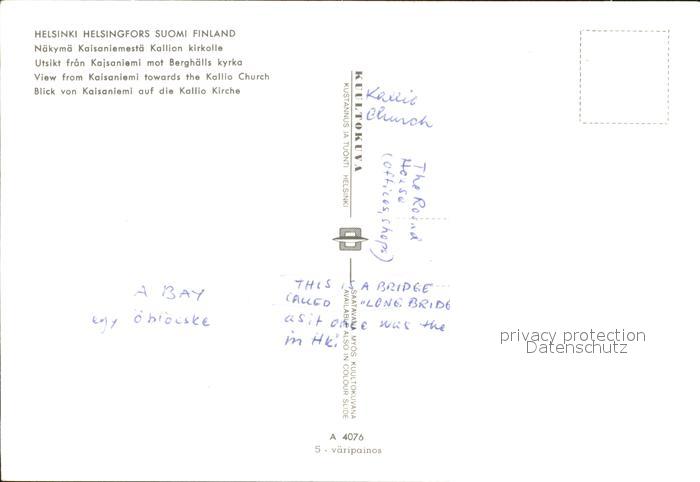 HELSINKI HELSINGFORS SUOMI FINLAND
Näkymä Kaisaniemestä Kallion kirkolle
Utsikt från Kajsaniemi mot Berghälls kyrka
View from Kaisaniemi towards the Kallio Church
Blick von Kaisaniemi auf die Kallio Kirche
KUULTOKUVA
KUSTANNUS JA TUONTI HELSINKI
Kallio
Church
The Round
House
(offices, shops)
A BAY
egy öblöcske
THIS IS A BRIDGE
CALLED "LONG BRIDG
as it once was the
in Hki
SAATAVANA MYÖS KUULTOKUVANA
AVAILABLE ALSO IN COLOUR SLIDE
privacy protection
Datenschutz
A 4076
5 - väripainos